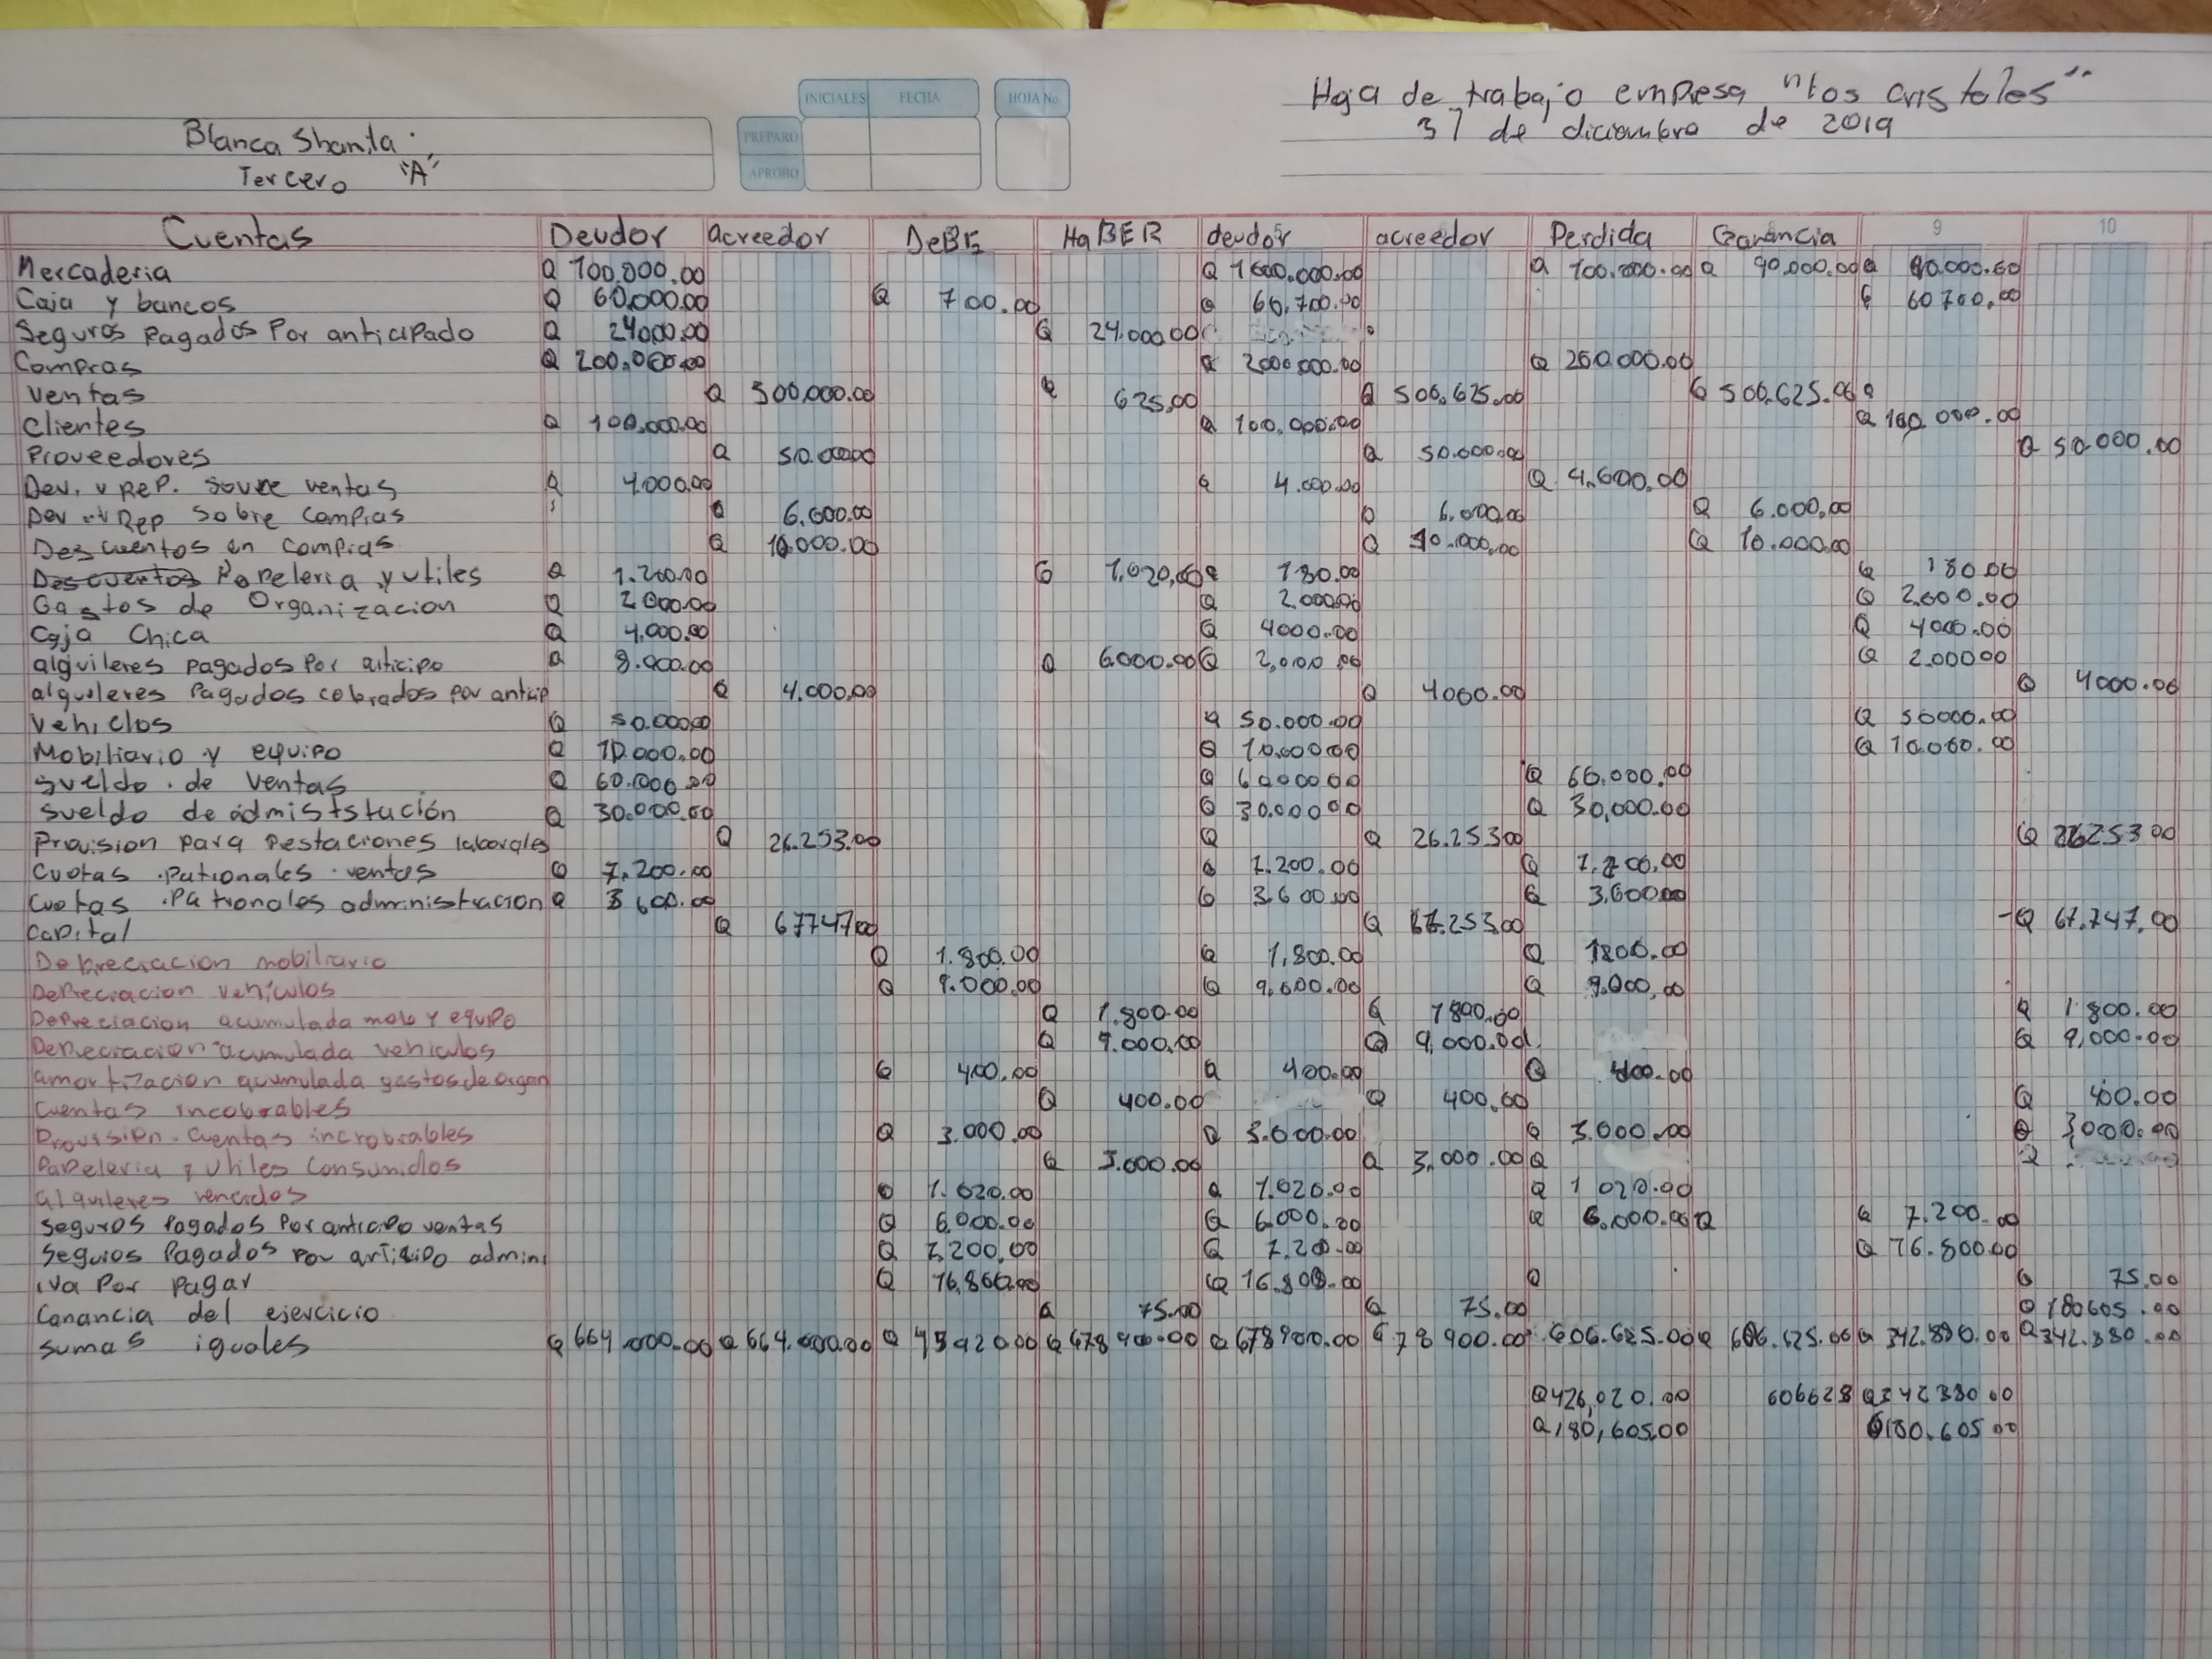 Hoja de trabajo empresa "los cristales"
31 de diciembre de 2019
INICIALES FECHA HOJA No.
PREPARO
APROBO
Blanca Shanita
Tercero "A"
Cuentas Deudor acreedor DeBE HaBER deudor acreedor Perdida Ganancia 9 10
Mercaderia Q 100.000.00 Q 1600.000.00 Q 100.000.00 Q 90.000.00 Q 90.000.00
Caja y bancos Q 60,000.00 Q 700.00 Q 60,700.00 Q 60700.00
Seguros Pagados Por anticipado Q 24000.00 Q 24,000.00
Compras Q 200,000.00 Q 2000000.00 Q 200.000.00
Ventas Q 500,000.00 Q 625,00 Q 500,625.00 Q 500,625.00 Q
Clientes Q 100,000.00 Q 100,000.00 Q 100,000.00
Proveedores Q 50.00000 Q 50.000.00 Q 50.000.00
Dev. v ReP. Sovre ventas Q 4.000.00 Q 4.000.00 Q 4,000.00
Dev y Rep Sobre Compras Q 6.000.00 Q 6,000.00 Q 6.000,00
Descuentos en compras Q 10.000.00 Q 10.000,00 Q 10.000.00
Papeleria y utiles Q 1.200.00 Q 1,020,00 Q 180.00 Q 180.00
Gastos de Organizacion Q 2000.00 Q 2.000.00 Q 2.000.00
Caja Chica Q 4,000.00 Q 4000.00 Q 4000.00
alquileres pagados Por anticipo Q 8.000.00 Q 6000.00 Q 2,000.00 Q 2.00000
alquileres Pagados cobrados por anticip Q 4.000.00 Q 4000.00 Q 4000.00
Vehiclos Q 50.00000 Q 50.000.00 Q 50000.00
Mobiliario y equipo Q 10.000.00 Q 10.00000 Q 10.000.00
Sueldo de ventas Q 60.000.00 Q 6000000 Q 60.000.00
Sueldo de admististución Q 30.000.00 Q 30.00000 Q 30,000.00
Provision para Pestaciones laborales Q 26.253.00 Q Q 26.25300 Q 26253.00
Cuotas Patronales ventas Q 7,200.00 Q 7.200.00 Q 7.200.00
Cuotas Patronales administracion Q 3600.00 Q 3.600.00 Q 3.60000
Capital Q 6774700 Q 67.253.00 Q 67.747.00
Depreciacion mobiliario Q 1.800.00 Q 1,800.00 Q 1800.00
Depreciacion vehiculos Q 9.000.00 Q 9,000.00 Q 9.000,00
Depreciacion acumulada mob y equipo Q 1.800.00 Q 1800.00 Q 1800.00
Depreciacion acumulada vehiculos Q 9.000.00 Q 9,000.00 Q 9,000.00
amortizacion acumulada gastos de organ Q 400.00 Q 400.00 Q 400.00
Cuentas incobrables Q 400.00 Q 400.00 Q 400.00
Provision Cuentas incrobrables Q 3.000.00 Q 3.000.00 Q 3.000.00 Q 3,000.00
Papeleria y utiles Consumidos Q 3.000.00 Q 3,000.00 Q
alquileres vencidos Q 1.020.00 Q 1.020.00 Q 1020.00
Seguros Pagados Por anticipo ventas Q 6,000.00 Q 6.000.00 Q 6,000.00 Q Q 7.200.00
Seguros Pagados Por anticipo admini Q 7,200,00 Q 7.200.00 Q 76.800.00
iva Por Pagar Q 16,800.00 Q 16.800.00 Q Q 75.00
Ganancia del ejercicio Q 75.00 Q 75.00 Q 180605.00
Sumas iguales Q 664,000.00 Q 664.000.00 Q 4592000 Q 678900.00 Q 678900.00 Q 78900.00 606.625.00 Q 606.625.00 Q 342.880.00 Q 342.880.00
Q 426,020.00 606628 Q 342380.00
Q 180,605.00 Q 180.605.00